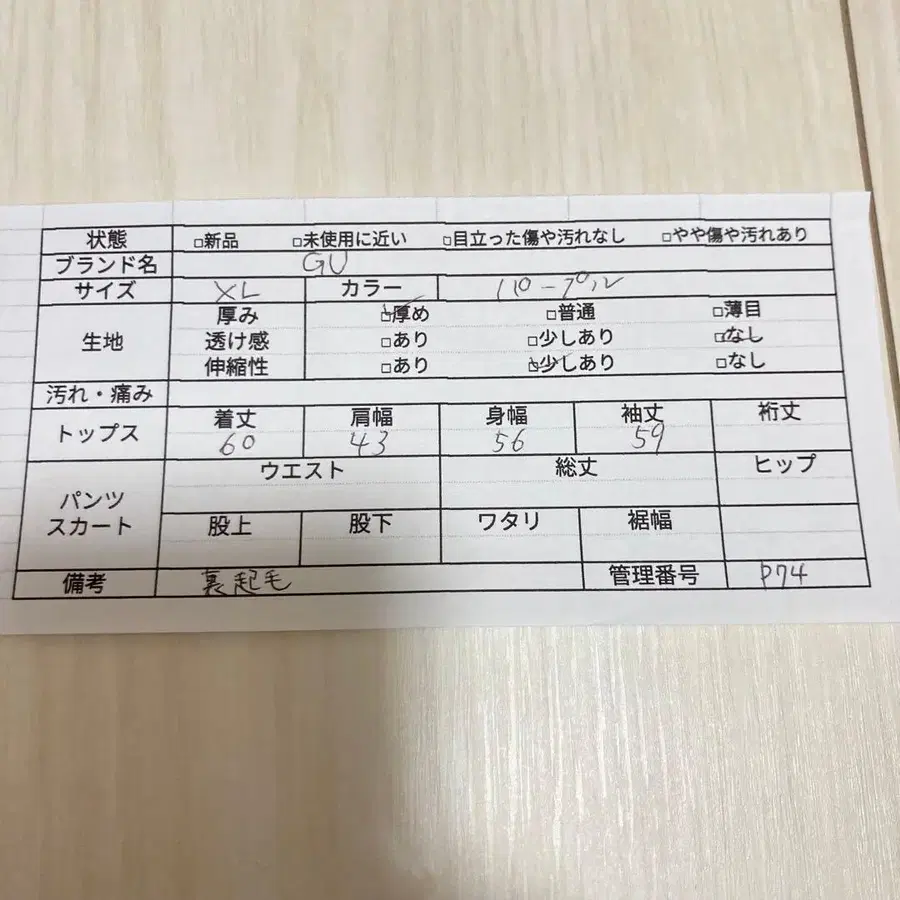 状態 □新品 □未使用に近い □目立った傷や汚れなし □やや傷や汚れあり
ブランド名 GU
サイズ XL カラー パープル
生地 厚み ☑厚め □普通 □薄目
透け感 □あり □少しあり ☑なし
伸縮性 □あり ☑少しあり □なし
汚れ・痛み
トップス 着丈 肩幅 身幅 袖丈 裄丈
60 43 56 59
パンツ スカート ウエスト 総丈 ヒップ
股上 股下 ワタリ 裾幅
備考 裏起毛 管理番号 P74